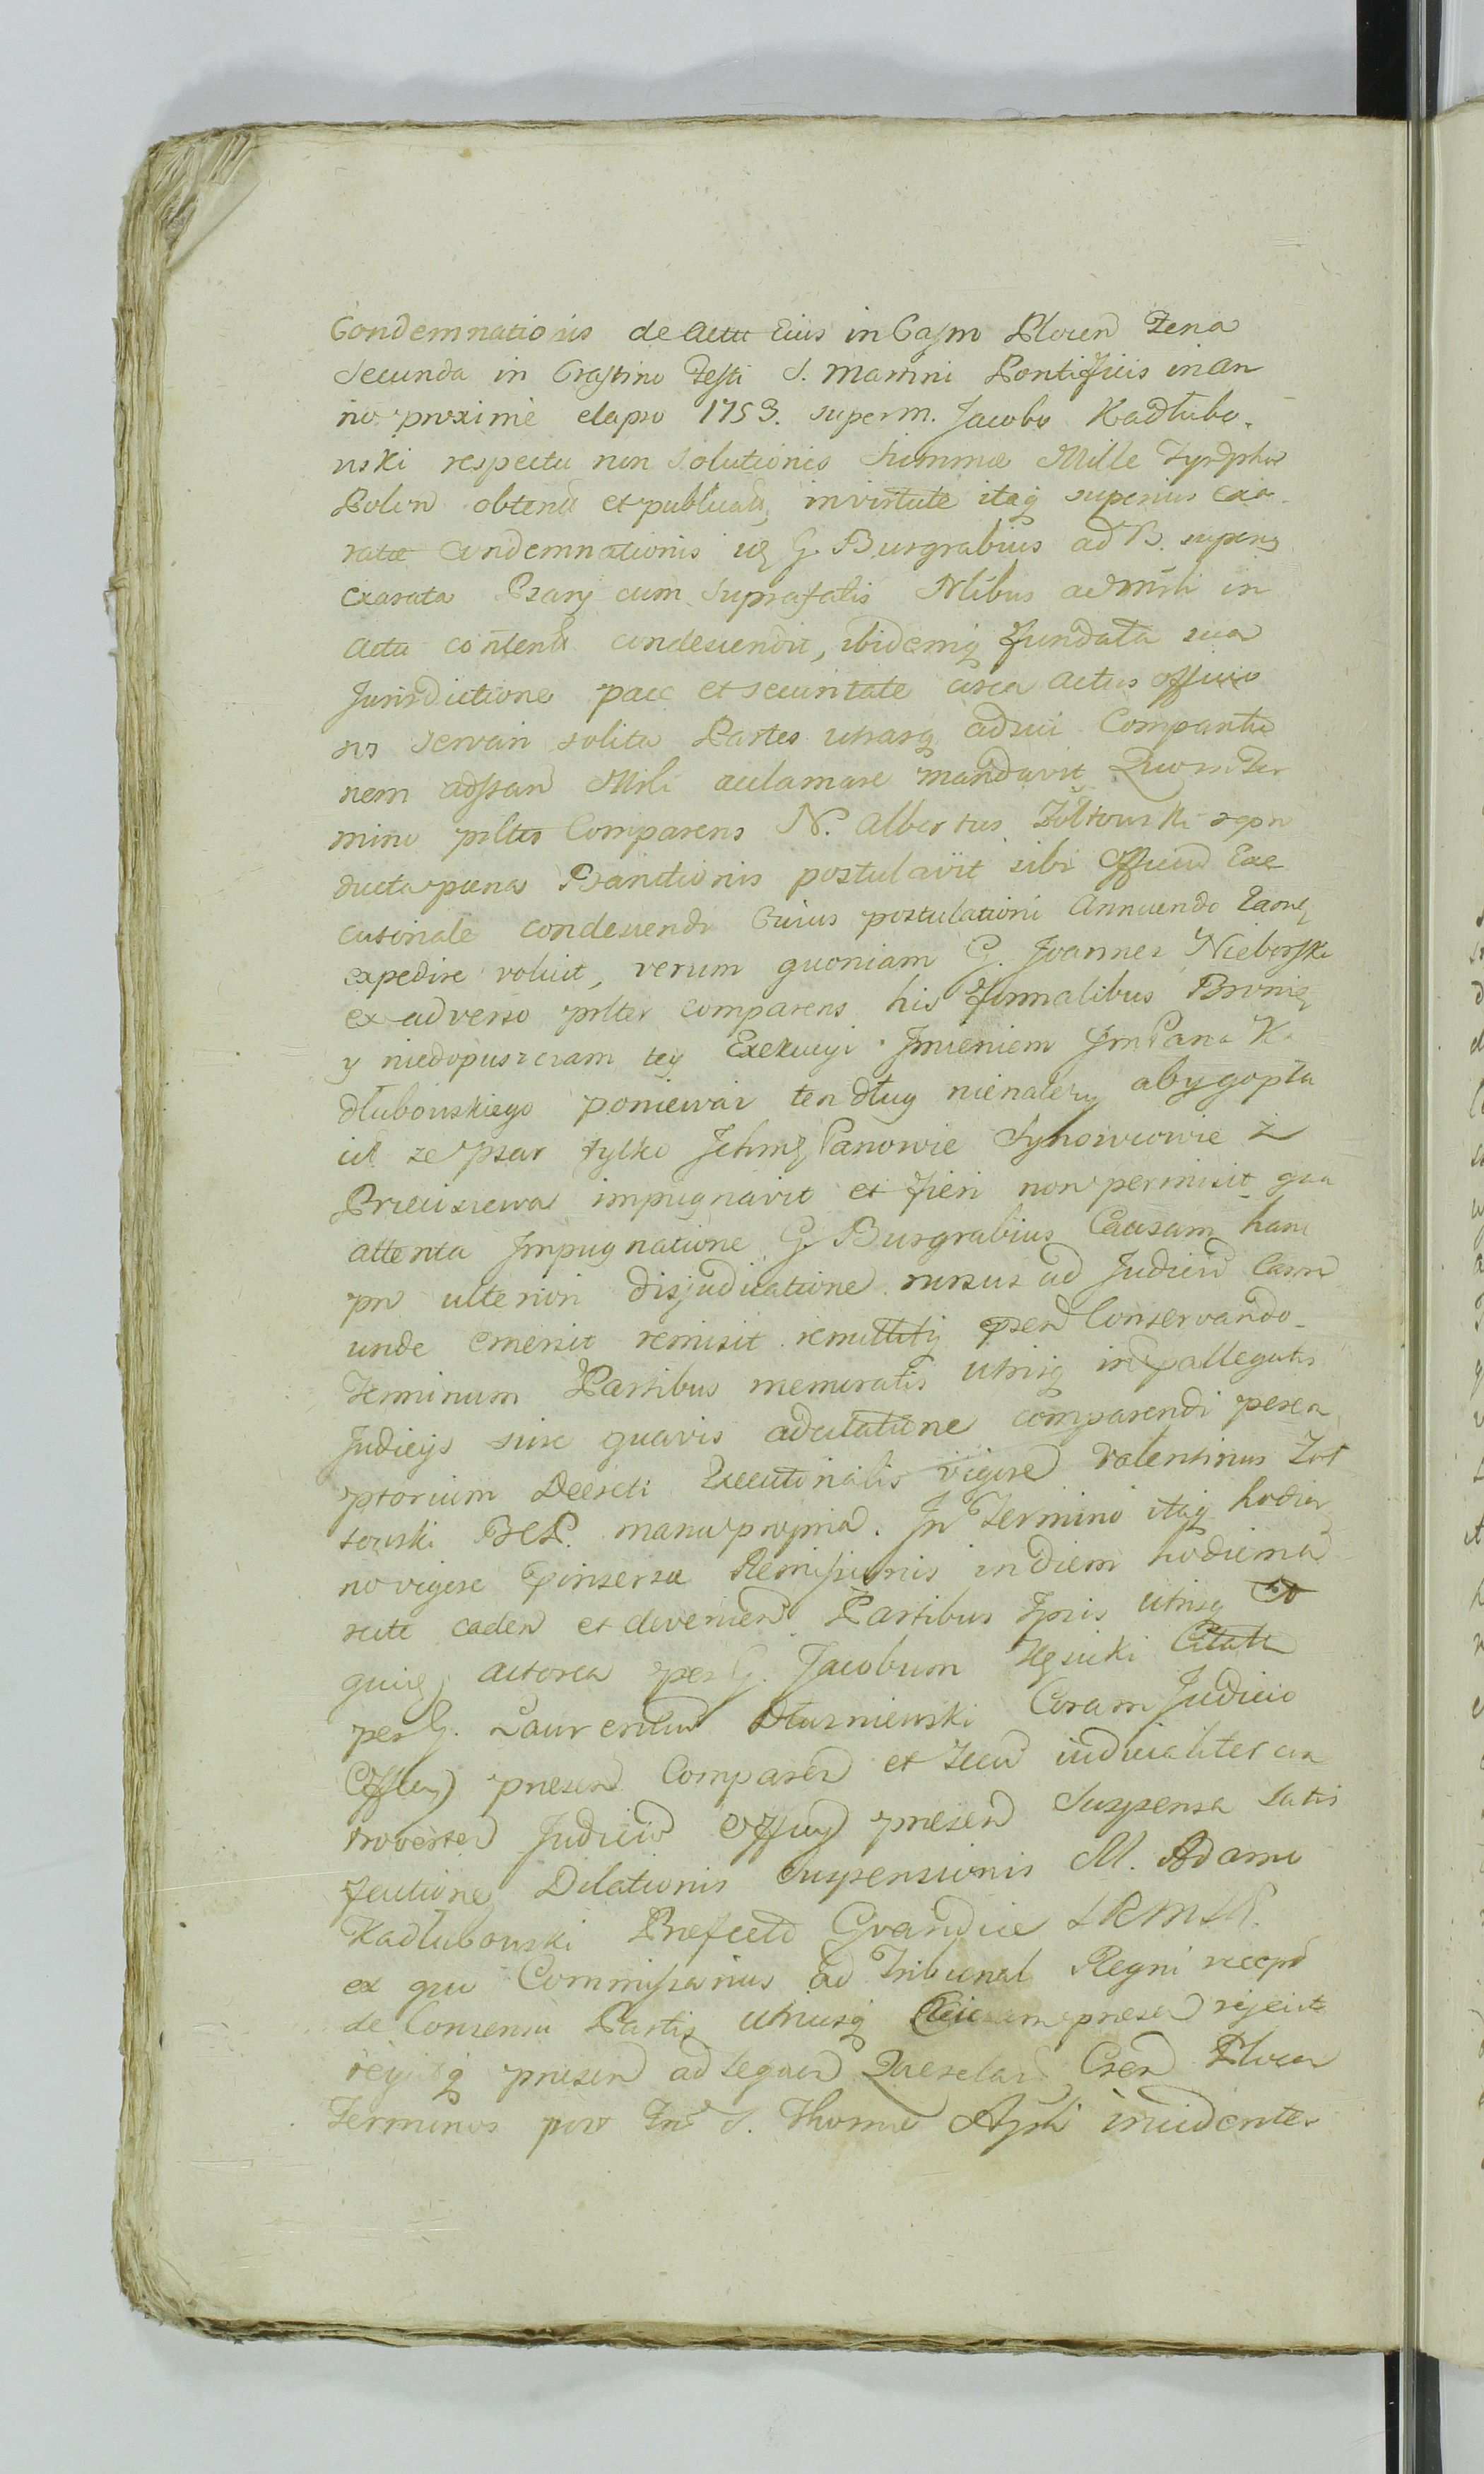 Condemnationis de actu Eius in Casrn Plocen Feria
Secunda in Crastino Festi S. Martini Pontificis in an
no proxime elapso 1753. super M. Jacobo Kadłubo-
wski respectu non Solutionis Summæ Mille Tymphor
Polon obtentæ et publicatæ, in virtute itaq superius exa-
ratæ Condemnationis idē G. Burgrabius ad B. superius
exarata Psary cum Suprafatis Nlibus ac Mrli in
actu contentis condescendit, ibidemq fundata sua
Jurisdictione pace et securitate circa actus officio
sos servari solita Partes utrasq ad sui Comparitio
nem adstan Mrli acclamare mandavit Quo in Ter
mino prltes Comparens N. Albertus Żółtowski repro
ducta pæna Bannitionis postulavit sibi Officium Exe
cutoriale condescendi Cuius postulationi Annuendo Eamq
expedire voluit, verum quoniam G. Joannes Nieborski
ex adverso prlter comparens his formalibus Bronię
y niedopuszczam tey Exekucyi Imieniem Jm Pana Ka
dłubowskiego ponieważ ten dług nienależy aby go pła
cił ze Psar tylko Ichmę Panowie Synowcowie z
Przeciszewa impugnavit et fieri non permisit qua
attenta Impugnatione G. Burgrabius Causam hanc
pro ulteriori disjudicatione rursus ad Judicium Casrn
unde emersit remisit remittitq pren Conservando
Terminum Partibus memoratis utrisq in præallegatis
Judicijs sine quavis adcitatione comparendi perem
ptorium Decreti Executorialis vigore Valentinus Żoł
towski BCP. manu propria. In Termino itaq hodier
no vigore præinsertæ Remissionis in diem hodiernā
rite caden et devenien Partibus Ipsis utrisq
quidē actorea per G. Jacobum citata
per G. Laurentium Dłuzniewski Coram Judicio
Officioq presen Comparen et Secum iudicialiter con
troverten Judicium Officiumq presen Suspensa Satis
factione Dilationis Suspensionis M. Adami
Kadłubowski Præfecto Gvardiæ SRMLR.
ex quo Commissarius ad Tribunal Regni recepto
de Consensu Partis utriusq Causam presen rejecit
rejicitq presen ad sequen Querelar Cren Plocen
Terminos post Fm S. Thomæ Apsli inciden​tes